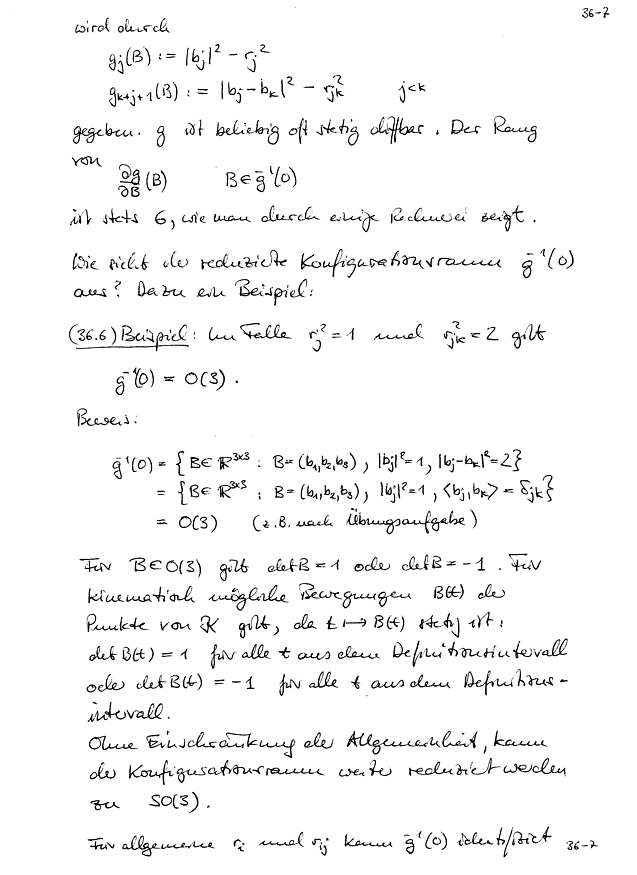 36-7
wird durch
g_j(B) := |b_j|² − r_j²
g_{k+j+1}(B) := |b_j − b_k|² − r_{jk}² j<k
gegeben. g ist beliebig oft stetig diffbar. Der Rang
von
∂g/∂B (B) B ∈ g⁻¹(0)
ist stets 6, wie man durch einige Rechnerei zeigt.
Wie sieht der reduzierte Konfigurationsraum g⁻¹(0)
aus? Dazu ein Beispiel:
(36.6) Beispiel: Im Falle r_j² = 1 und r_{jk}² = 2 gilt
g⁻¹(0) = O(3).
Beweis:
g⁻¹(0) = { B ∈ ℝ^{3×3} : B = (b₁,b₂,b₃), |b_j|² = 1, |b_j − b_k|² = 2 }
= { B ∈ ℝ^{3×3} : B = (b₁,b₂,b₃), |b_j|² = 1, <b_j, b_k> = δ_{jk} }
= O(3) (z.B. nach Übungsaufgabe)
Für B ∈ O(3) gilt det B = 1 oder det B = −1. Für
kinematisch mögliche Bewegungen B(t) der
Punkte von K gilt, da t ↦ B(t) stetig ist:
det B(t) = 1 für alle t aus dem Definitionsintervall
oder det B(t) = −1 für alle t aus dem Definitions-
intervall.
Ohne Einschränkung der Allgemeinheit, kann
der Konfigurationsraum weiter reduziert werden
zu SO(3).
Für allgemeine r_i und r_{ij} kann g⁻¹(0) identifiziert
36-7